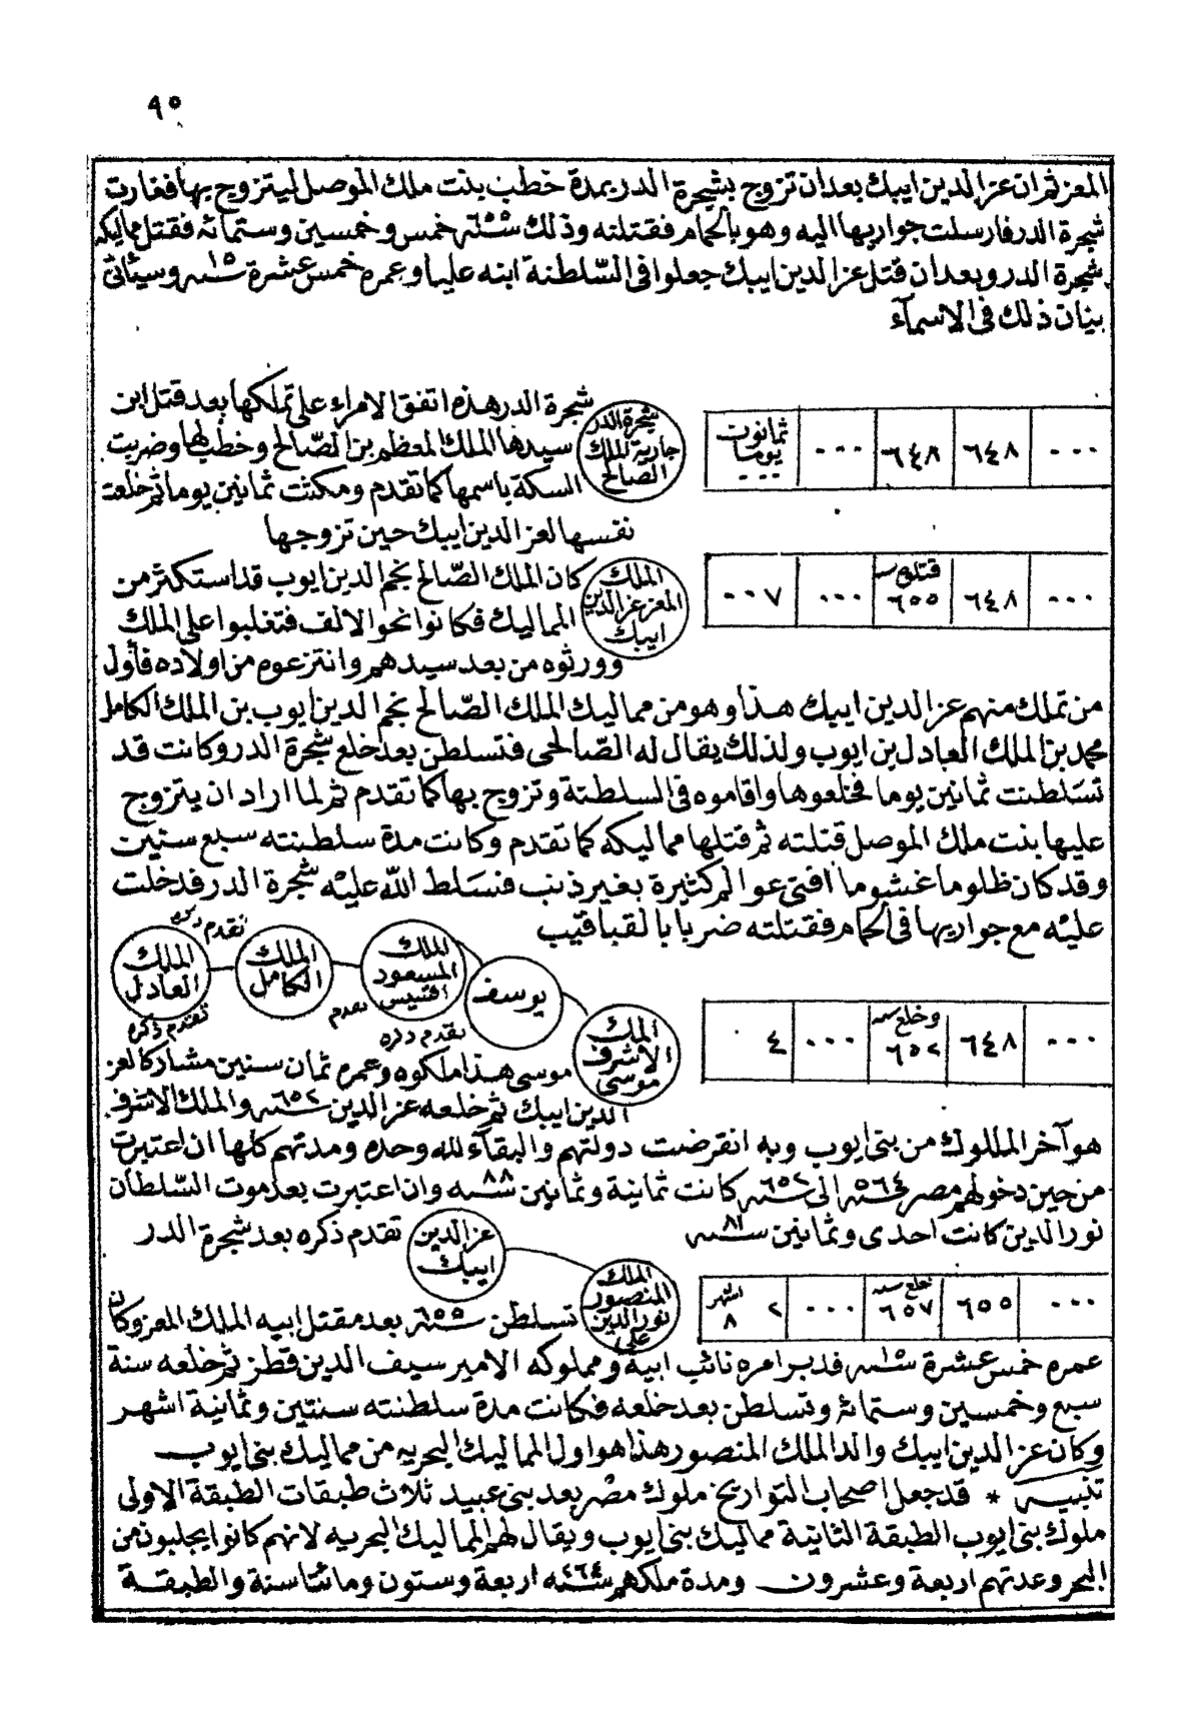 ٩٥
المعز ثم ان عز الدين ايبك بعد ان تزوج بشجرة الدر بمدة خطب بنت ملك الموصل ليتزوج بها فغارت
شجرة الدر فارسلت جواريها اليه وهو بالحمام فقتلنه وذلك سنة ٦٥٥ خمس وخمسين وستمائة فقتل مماليكه
شجرة الدر وبعد ان قتل عز الدين ايبك جعلوا في السّلطنة ابنه عليا وعمره خمس عشرة ١٥ سنه وسيئاتي
بيان ذلك في الاسمآء
... ٦٤٨ ٦٤٨ ... ثمانون يوما ...
شجرة الدر جارية الملك الصالح
شجرة الدر هذه اتفق الامراء على تملكها بعد قتل ابن
سيدها الملك المعظم بن الصّالح وخطب لها وضربت
السكة باسمها كما تقدم ومكثت ثمانين يوما ثم خلعت
نفسها لعز الدين ايبك حين تزوجها
... ٦٤٨ قتل سنه ٦٥٥ ... ٠٠٧
الملك المعز عز الدين ايبك
كان الملك الصّالح نجم الدين ايوب قد استكثر من
المماليك فكانوا نحو الالف فتغلبوا على الملك
وورثوه من بعد سيدهم وانتزعوه من اولاده فأول
من تملك منهم عز الدين ايبك هذا وهو من مماليك الملك الصّالح نجم الدين ايوب بن الملك الكامل
محمد بن الملك العادل بن ايوب ولذلك يقال له الصّالحى فتسلطن بعد خلع شجرة الدر وكانت قد
تسَلطنت ثمانين يوما فخلعوها واقاموه في السلطنة وتزوج بها كما تقدم ثم لما اراد ان يتزوج
عليها بنت ملك الموصل قتلته ثم قتلها مماليكه كما تقدم وكانت مدة سلطنته سبع سنين
وقد كان ظلوما غشوما افتى عوالم كثيرة بغير ذنب فنسَلط الله عليْه شجرة الدر فدخلت
عليْه مع جواريها في الحمام فقتلته ضربا بالقباقيب
الملك العادل تقدم ذكره
الملك الكامل تقدم ذكره
الملك المسعود اقسيس تقدم
يوسف تقدم ذكره
الملك الاشرف موسى
... ٦٤٨ وخلع سنه ٦٥٢ ... ٤
موسى هذا ملكوه وعمره ثمان سنين مشاركا لعز
الدين ايبك ثم خلعه عز الدين سنة ٦٥٢ والملك الاشرف
هو آخر الملوك من بنى ايوب وبه انقرضت دولتهم والبقآء لله وحده ومدتهم كلها ان اعتبرت
من حين دخولهم مصر سنة ٥٦٤ الى سنة ٦٥٢ كانت ثمانية وثمانين ٨٨ سنه وان اعتبرت بعد موت السّلطان
نور الدين كانت احدى وثمانين ٨١ سنه
عز الدين ايبك
تقدم ذكره بعد شجرة الدر
... ٦٥٥ خلع سنه ٦٥٧ ... ٢ اشهر ٨
الملك المنصور نور الدين على
تسلطن سنة ٦٥٥ بعد مقتل ابيه الملك المعز وكان
عمره خمس عشرة ١٥ سنه فدبر امره نائب ابيه ومملوكه الامير سيف الدين قطز ثم خلعه سنة
سبع وخمسين وستمائة وتسلطن بعد خلعه فكانت مدة سلطنته سنتين وثمانية اشهر
وكان عز الدين ايبك والد الملك المنصور هذا هو اول المماليك البحريه من مماليك بنى ايوب
تنبيه * قد جعل اصحاب التواريخ ملوك مصْر بعد بنى عبيد ثلاث طبقات الطبقة الاولى
ملوك بنى ايوب الطبقة الثانية مماليك بنى ايوب ويقال لهم المماليك البحريه لانهم كانوا يجلبون من
البحر وعدتهم اربعة وعشرون ومدة ملكهم ٢٦٤ سنه اربعة وستون ومائتا سنة والطبقة